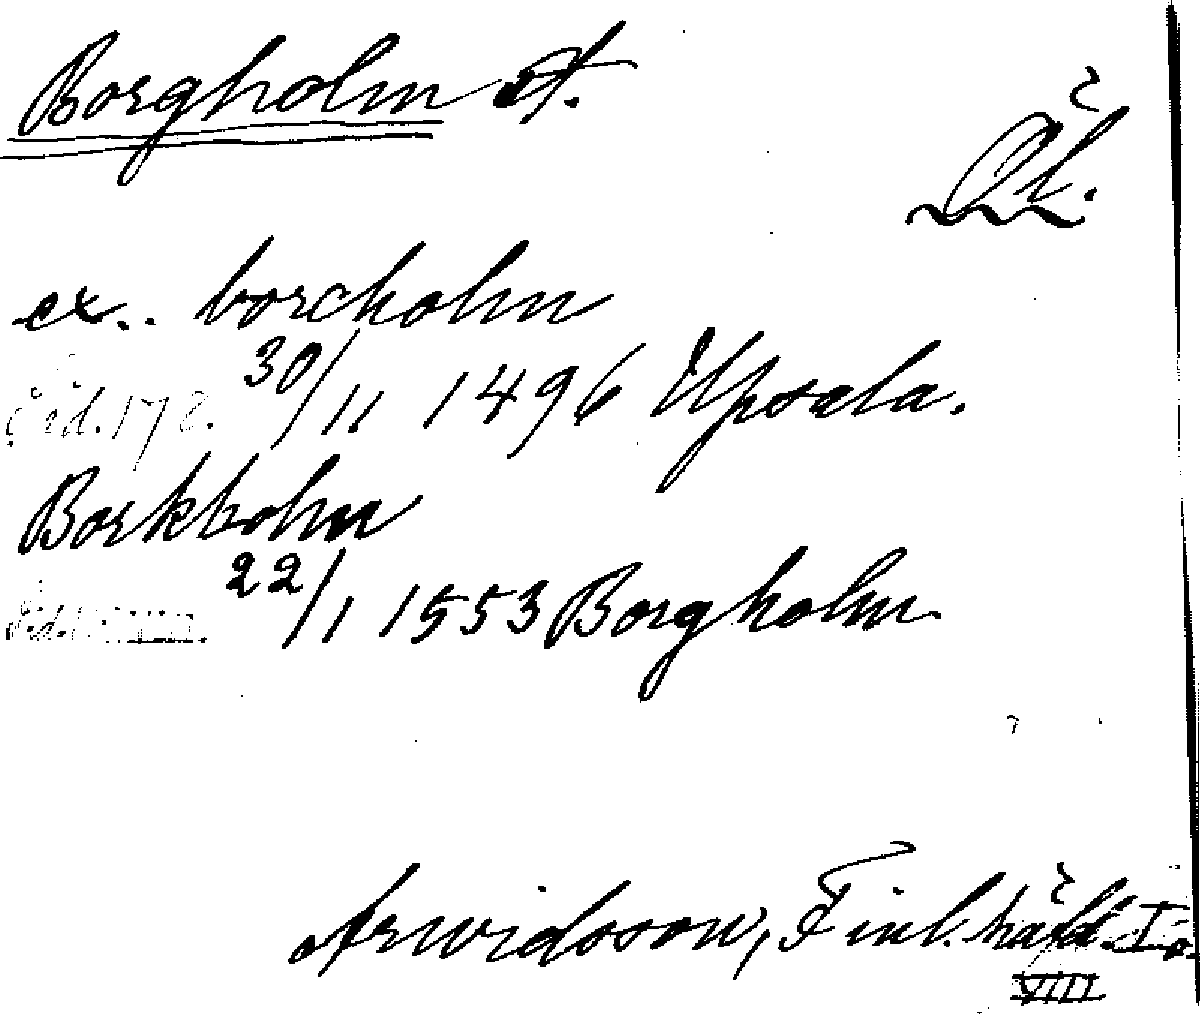 Borgholm st.
Öl.
ex.. borcholm
Sid. 178. 30/11 1496 Upsala.
Borkholm
Sid. 22/1 1553 Borgholm.
Arwidsson, Finl. häfd. I.
VIII